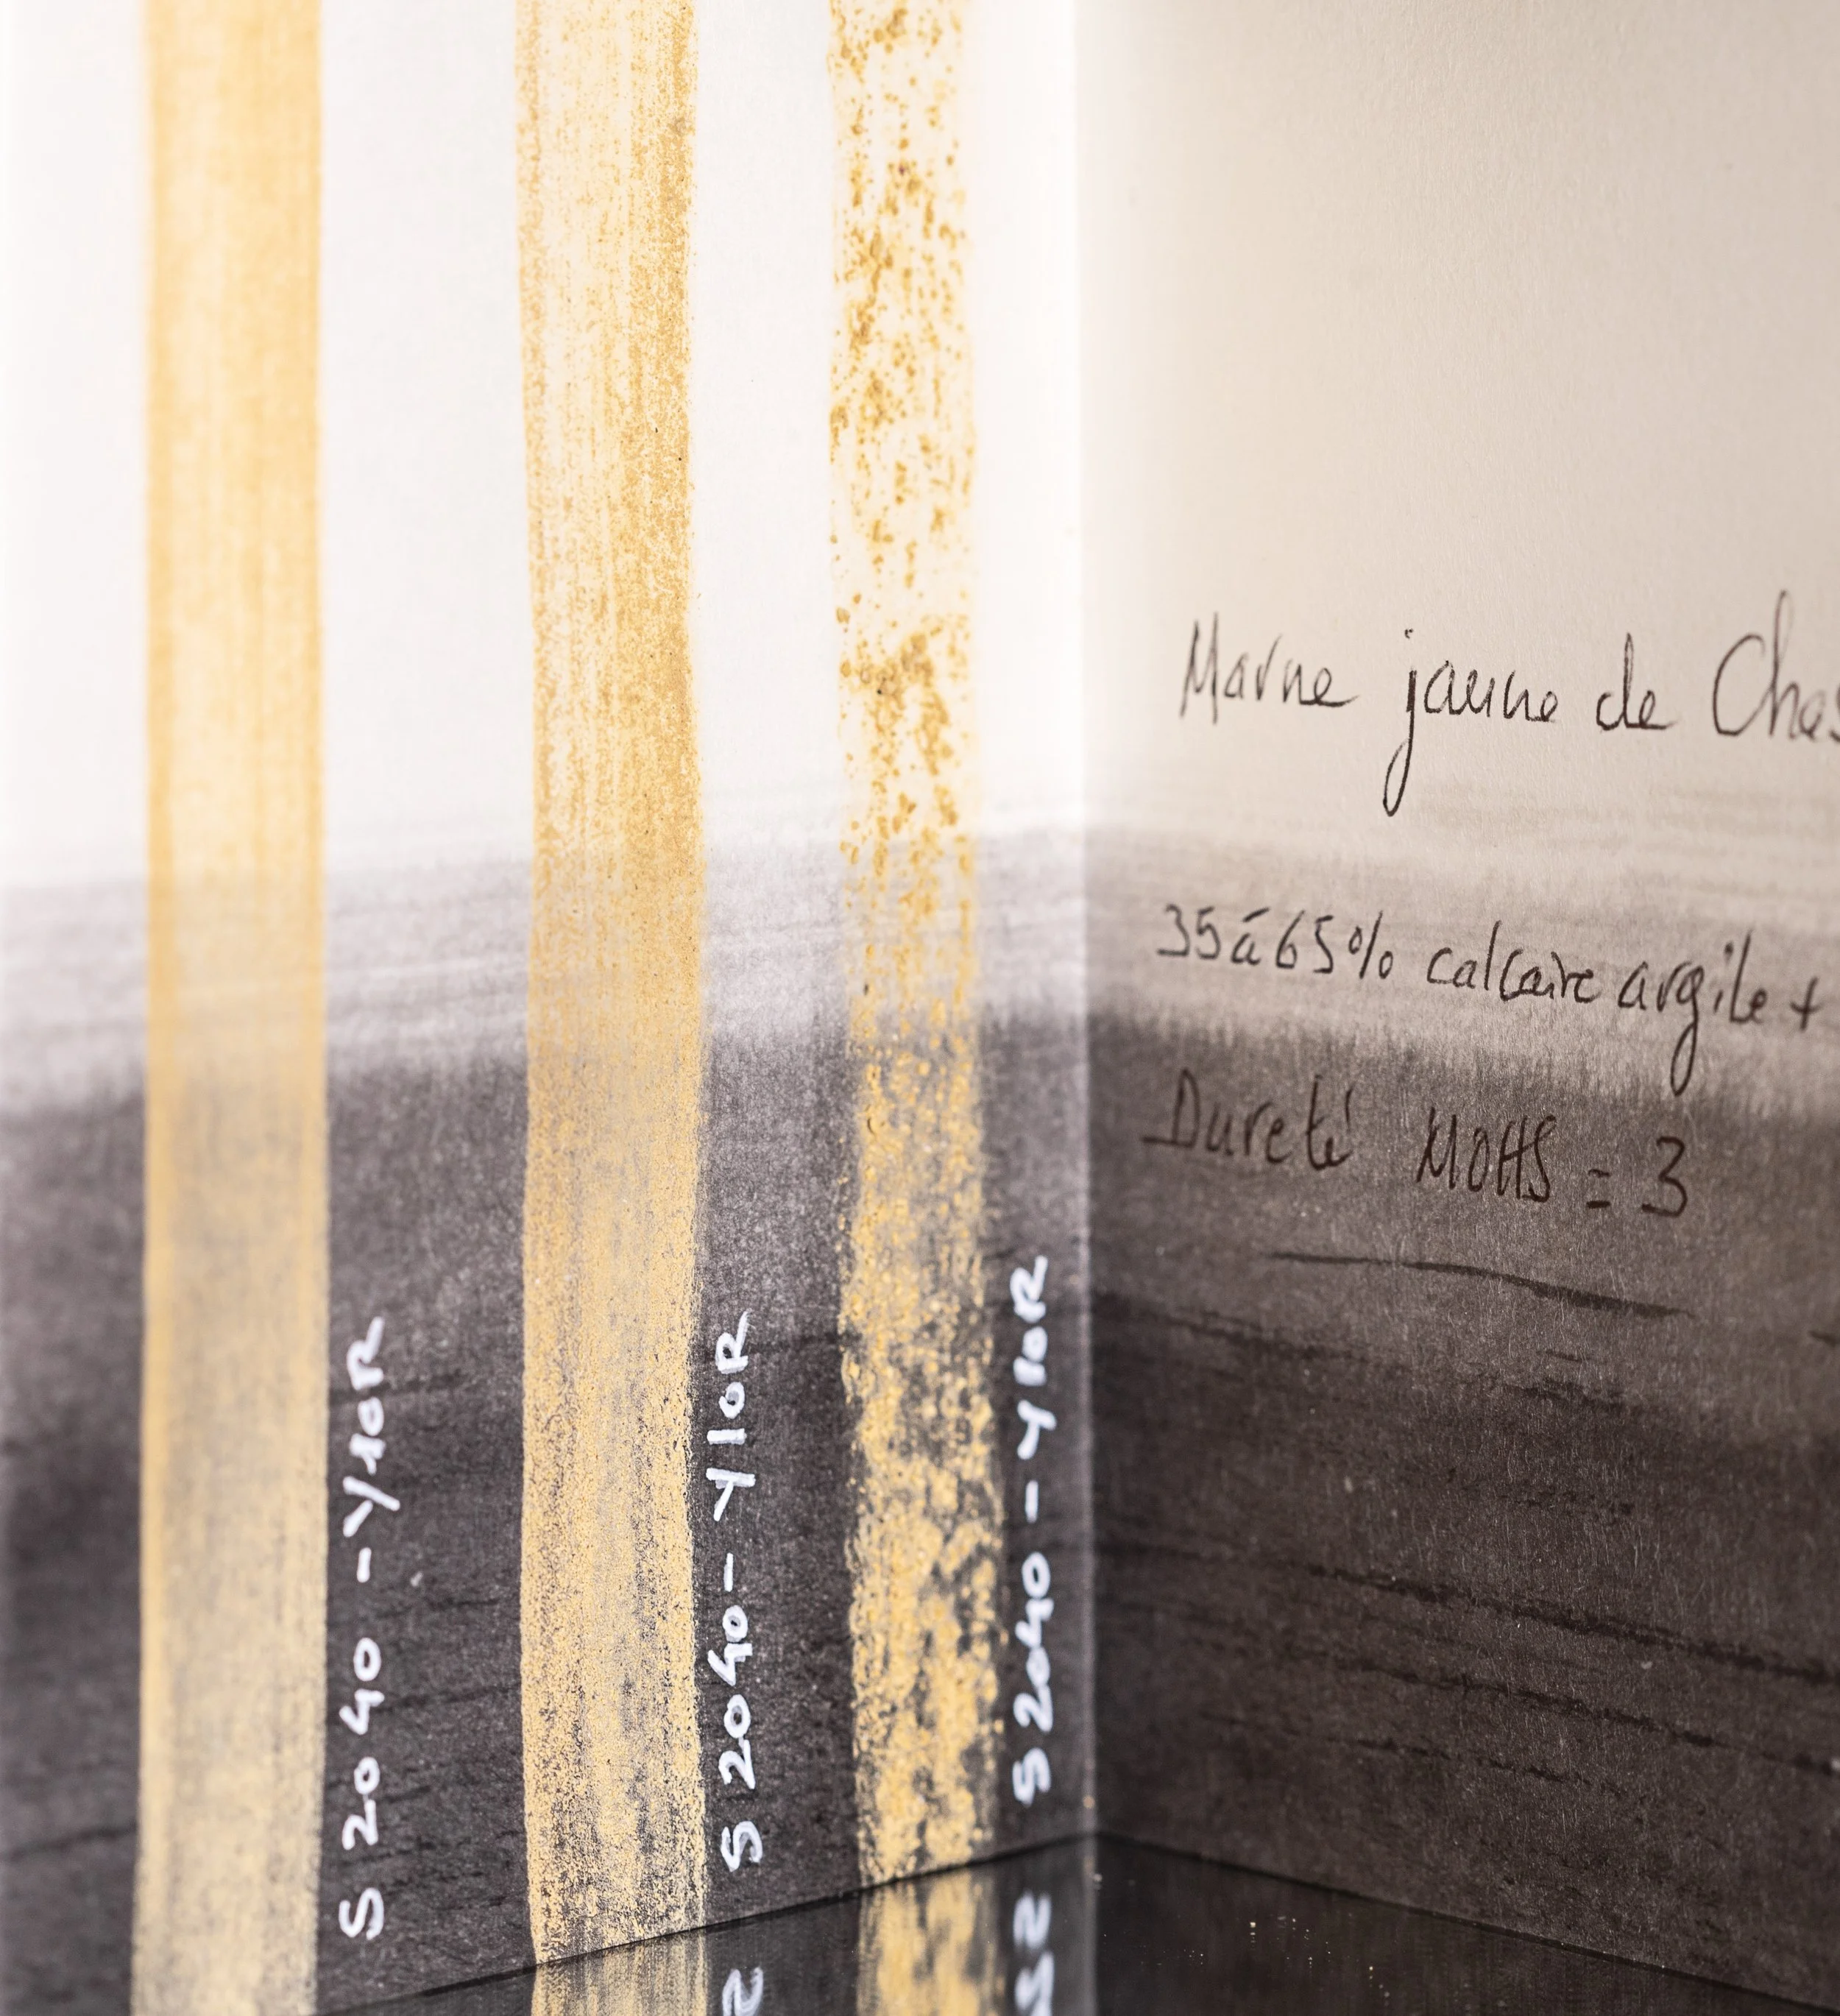 S 2040 - Y10R
S 2040 - Y10R
S 2040 - Y10R
Marne jaune de
35 à 65% calcaire argile +
Dureté MOHS = 3